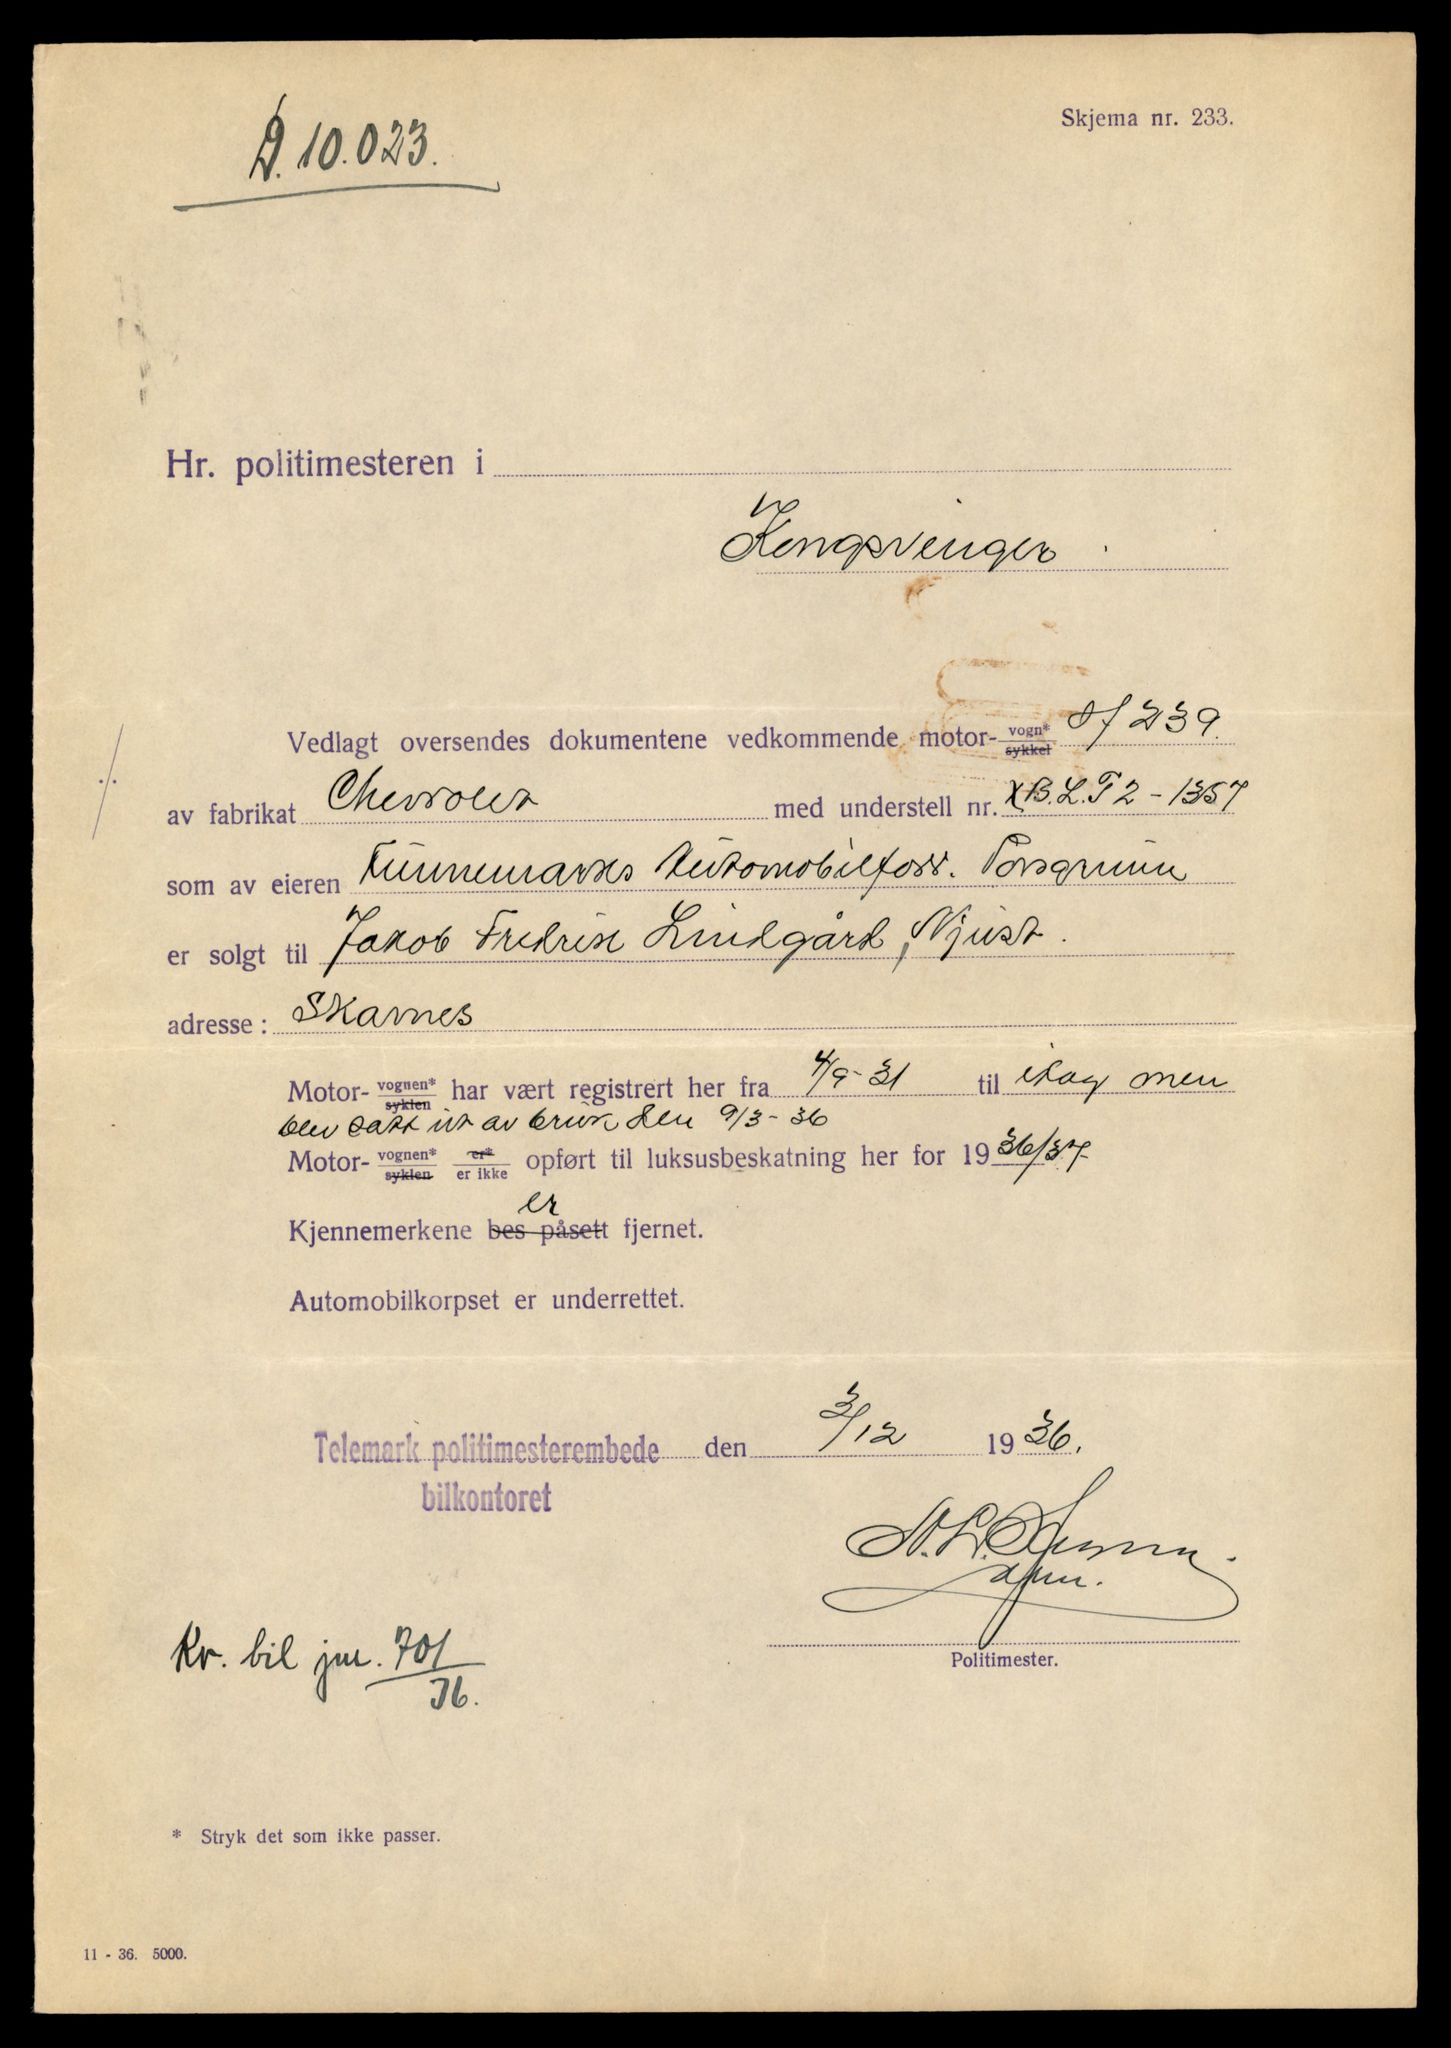 D. 10.023.
Skjema nr. 233.
Hr. politimesteren i
Kongsvinger.
Vedlagt oversendes dokumentene vedkommende motor- vogn* sykkel H 239.
av fabrikat Chevrolet med understell nr. XB.L.T 2 - 1357
som av eieren Funnemarks Automobilforr. Porsgrunn
er solgt til Jakob Fredrik Lindgård, Njust.
adresse: Skarnes
Motor- vognen* syklen har vært registrert her fra 4/9-31 til idag men
blev satt ut av bruk den 9/3-36
Motor- vognen* syklen er* er ikke opført til luksusbeskatning her for 1936/37.
er
Kjennemerkene bes påsett fjernet.
Automobilkorpset er underrettet.
Telemark politimesterembede den 3/12 1936.
bilkontoret
Politimester.
Kv. bil jnr. 701/36.
* Stryk det som ikke passer.
11 - 36. 5000.